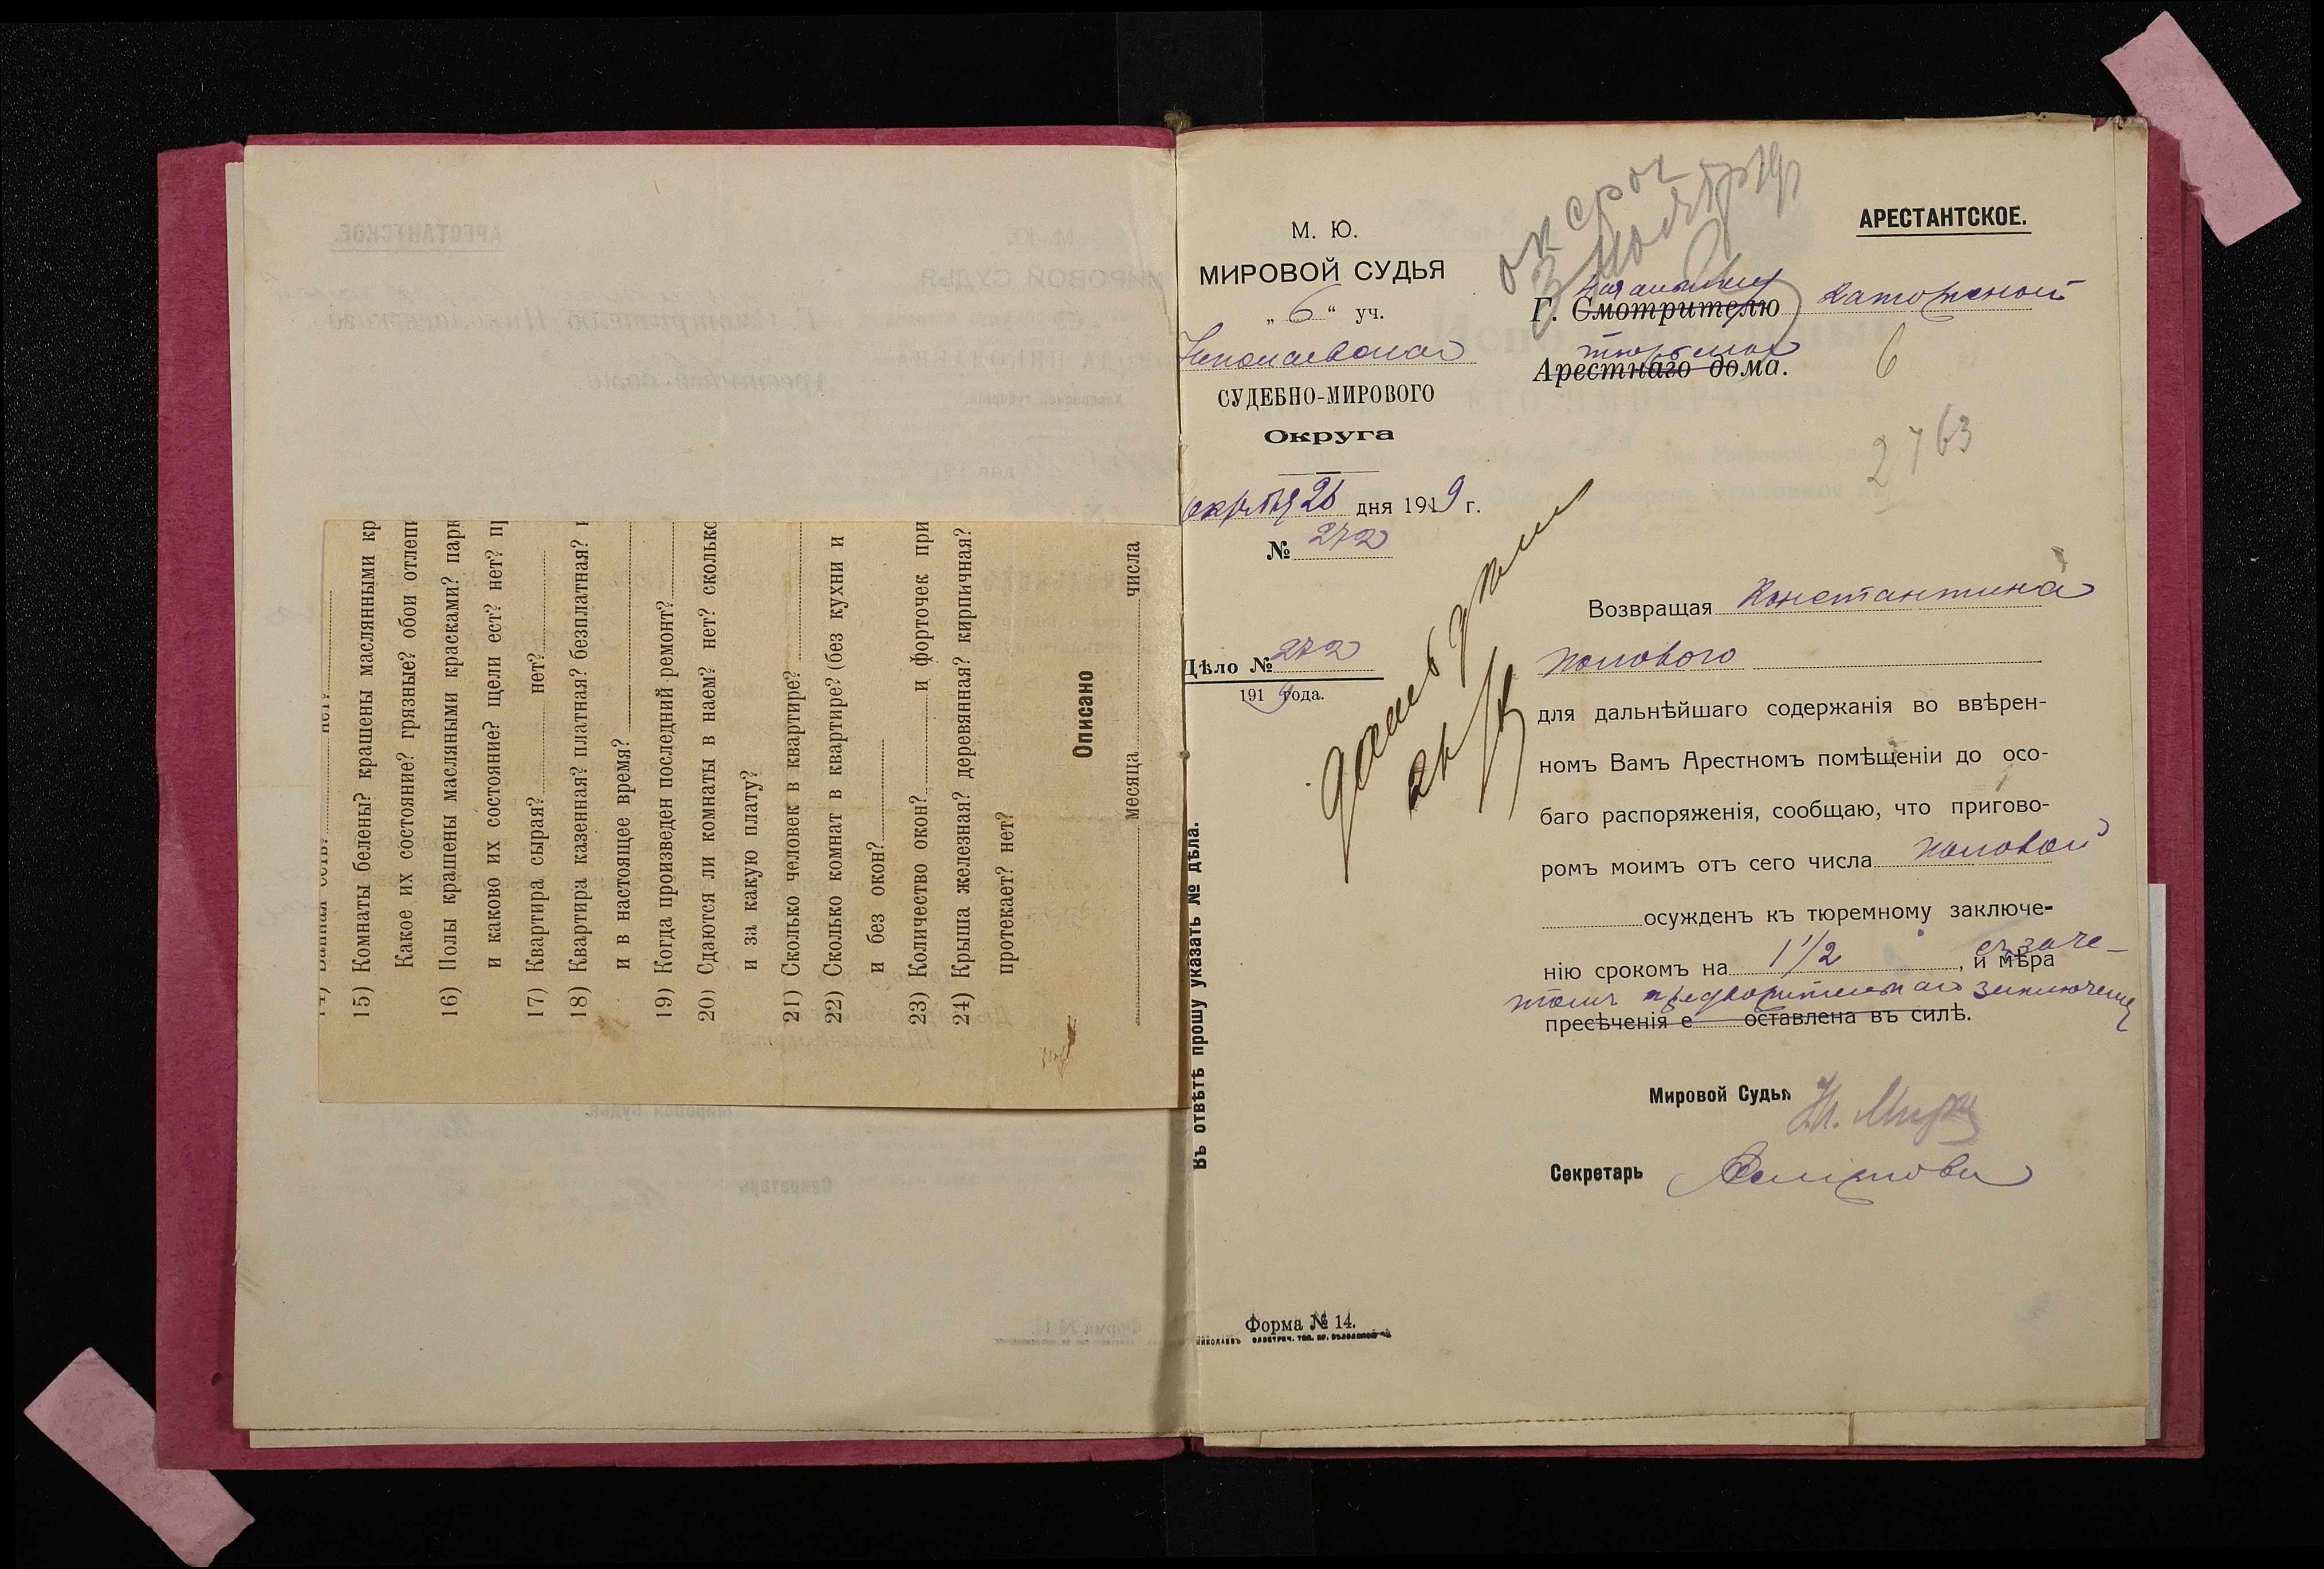 нет?
15) Комнаты белены? крашены масляными кр
Какое их состояние? грязные? обои отлепи
16) Полы крашены масляными красками? парк
и каково их состояние? щели ест? нет? пр
17) Квартира сырая? нет?
18) Квартира казенная? платная? безплатная?
и в настоящее время?
19) Когда произведен последний ремонт?
20) Сдаются ли комнаты в наем? нет? сколько
и за какую плату?
21) Сколько человек в квартире?
22) Сколько комнат в квартире? (без кухни и
и без окон?
23) Количество окон? и форточек при
24) Крыша железная? деревянная? кирпичная?
протекает? нет?
Описано
месяца числа
М. Ю.
МИРОВОЙ СУДЬЯ
„ 6 “ уч.
Николаевскаго
СУДЕБНО-МИРОВОГО
Округа
октября 26 дня 1919 г.
№ 272
Дѣло № 272
1919 года.
Въ отвѣтѣ прошу указать № дѣла.
Форма № 14.
ок срок
АРЕСТАНТСКОЕ.
Начальнику
Г. Смотрителю каторжной
тюрьмы
Арестнаго дома.
6
2763
Возвращая Константина
Полового
для дальнѣйшаго содержанія во ввѣрен-
номъ Вамъ Арестномъ помѣщеніи до осо-
баго распоряженія, сообщаю, что пригово-
ромъ моимъ отъ сего числа Половой
осужденъ къ тюремному заключе-
нію срокомъ на 1 1/2 , и мѣра съ заче-
томъ предварительнаго заключенія
пресѣченія е оставлена въ силѣ.
Мировой Судья
Секретарь